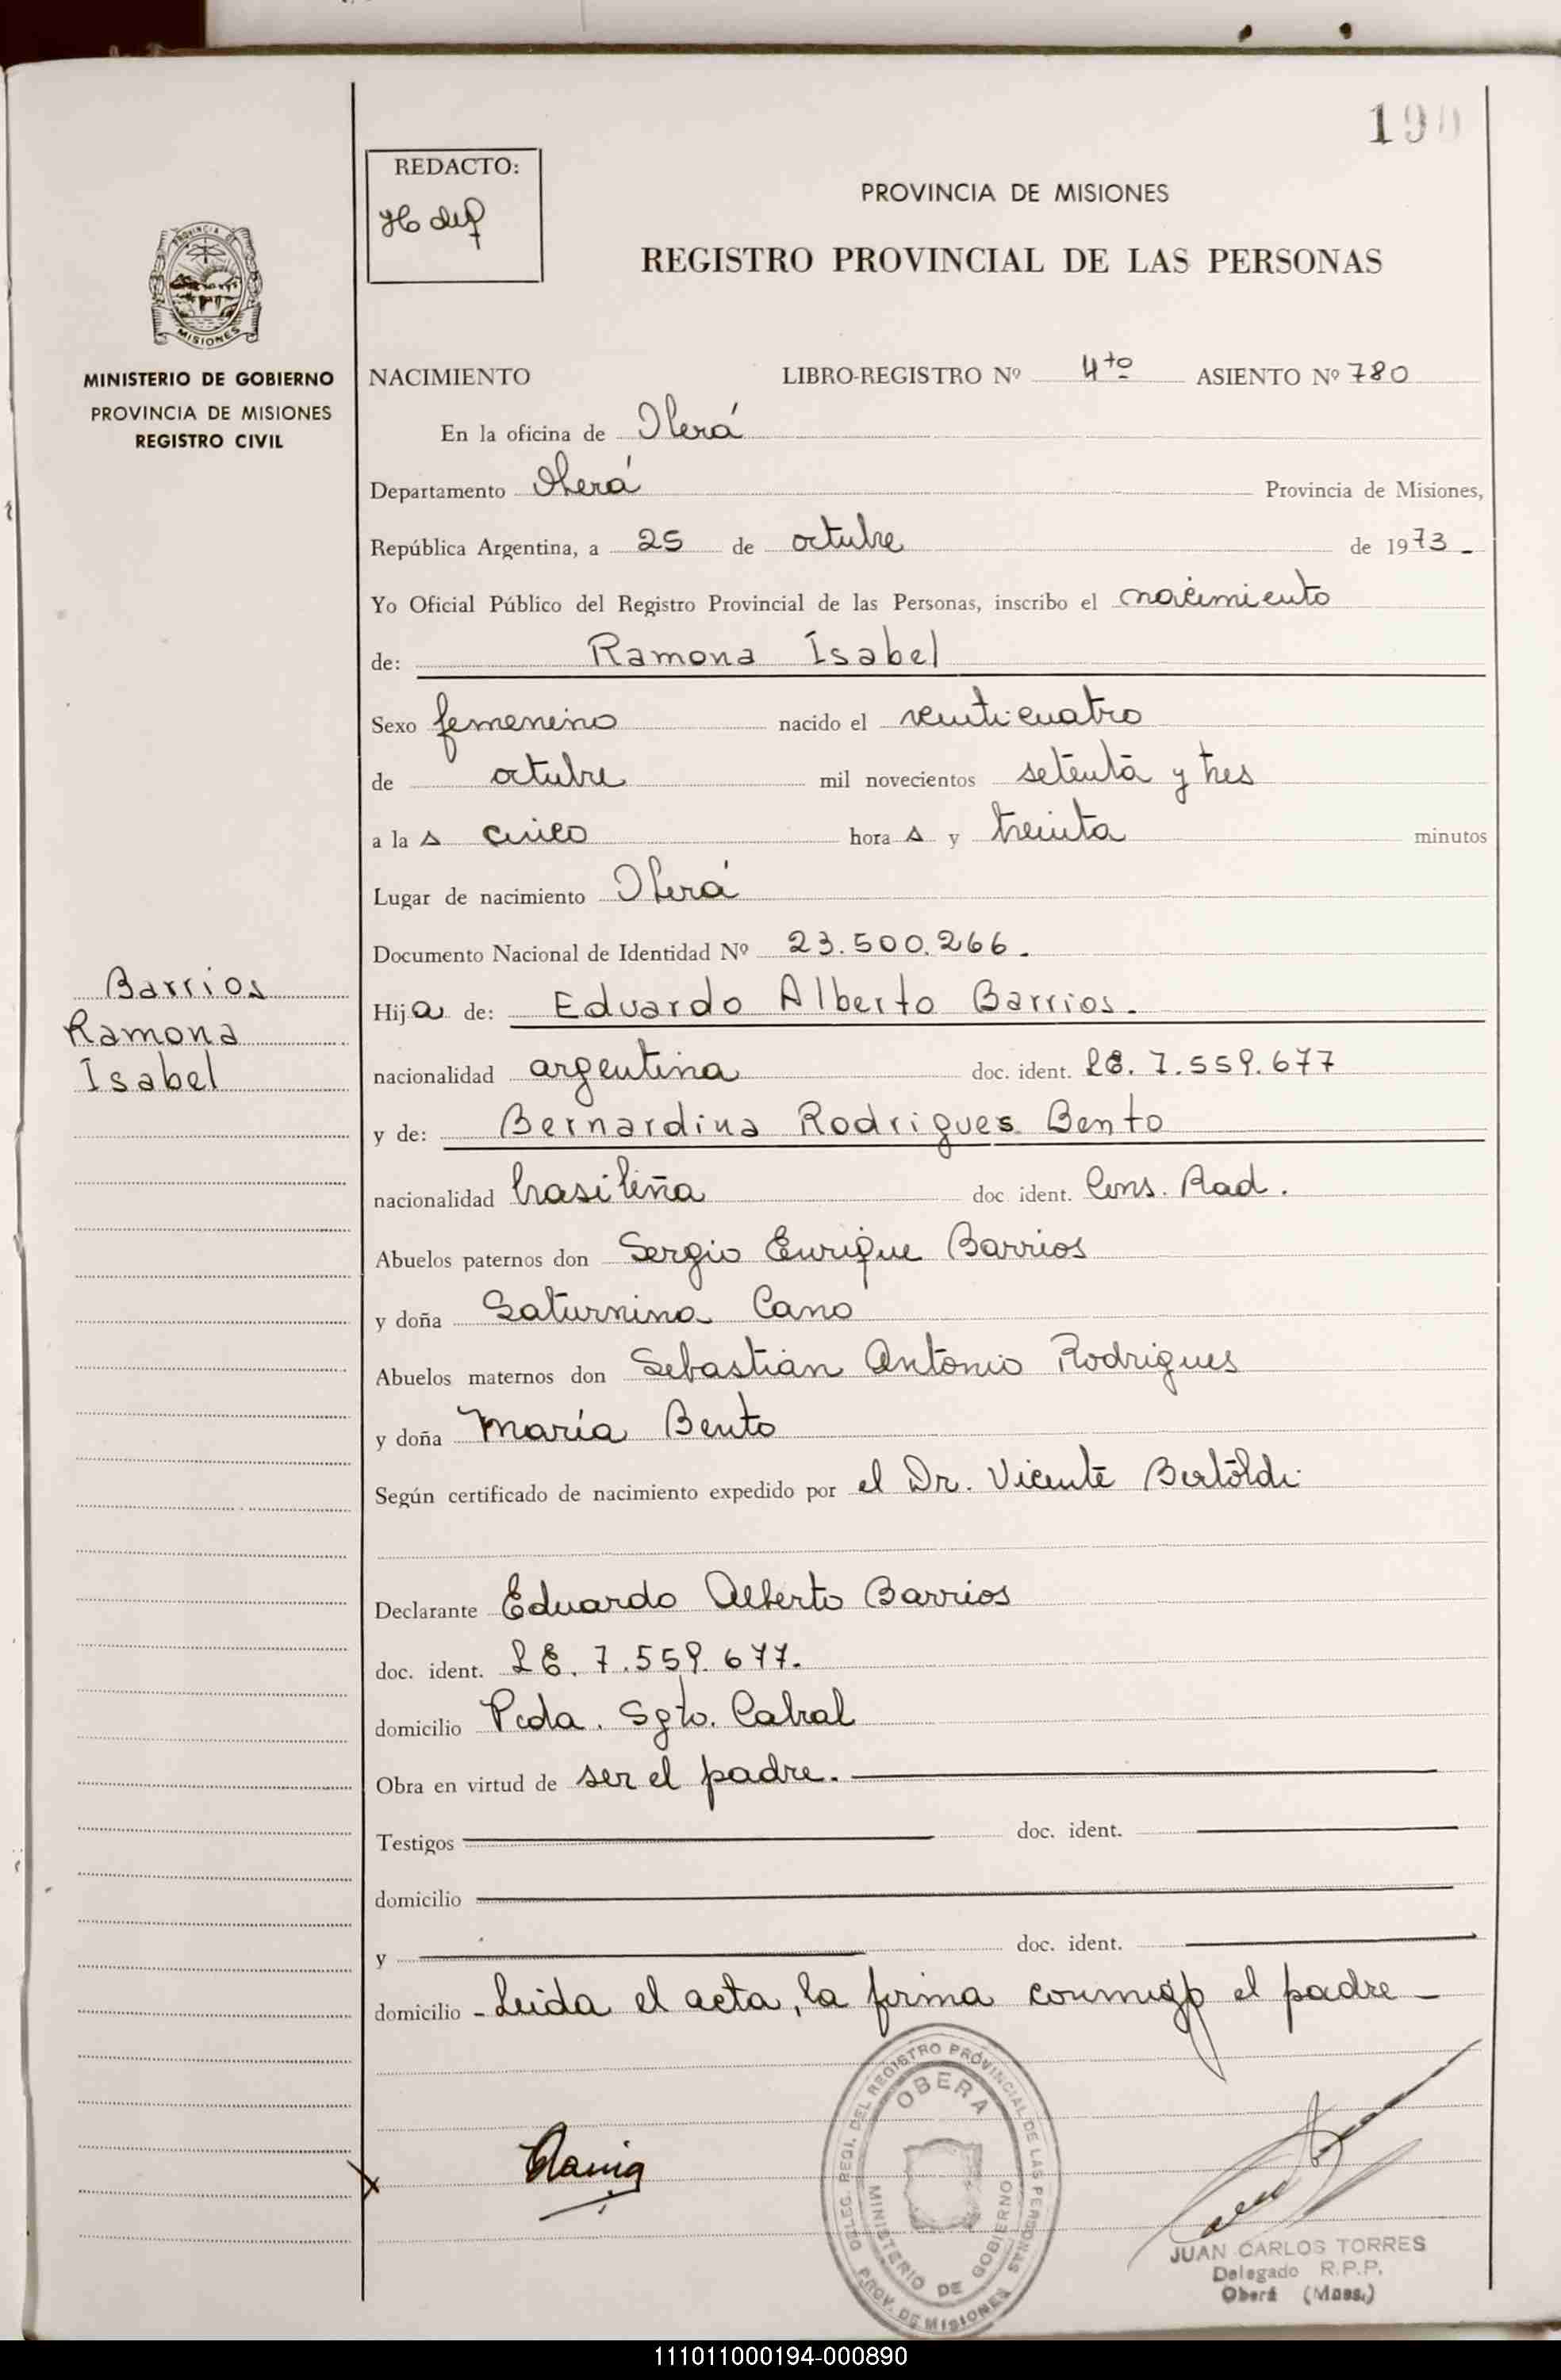 190
REDACTO:
PROVINCIA DE MISIONES
REGISTRO PROVINCIAL DE LAS PERSONAS
PROVINCIA DE
MISIONES
MINISTERIO DE GOBIERNO
PROVINCIA DE MISIONES
REGISTRO CIVIL
NACIMIENTO LIBRO-REGISTRO Nº 4to ASIENTO Nº 780
En la oficina de Oberá
Departamento Oberá Provincia de Misiones,
República Argentina, a 25 de octubre de 1973 -
Yo Oficial Público del Registro Provincial de las Personas, inscribo el nacimiento
de: Ramona Isabel
Sexo femenino nacido el veinticuatro
de octubre mil novecientos setenta y tres
a la s cinco hora s y treinta minutos
Lugar de nacimiento Oberá
Documento Nacional de Identidad Nº 23.500.266.
Barrios
Ramona
Isabel
Hija de: Eduardo Alberto Barrios.
nacionalidad argentina doc. ident. LE. 7.559.677
y de: Bernardina Rodrigues Bento
nacionalidad brasileña doc ident. Cons. Rad.
Abuelos paternos don Sergio Enrique Barrios
y doña Saturnina Cano
Abuelos maternos don Sebastián Antonio Rodrigues
y doña María Bento
Según certificado de nacimiento expedido por el Dr. Vicente Bertoldi
Declarante Eduardo Alberto Barrios
doc. ident. LE. 7.559.677.
domicilio Pcda. Sgto. Cabral
Obra en virtud de ser el padre.
Testigos doc. ident.
domicilio
y doc. ident.
domicilio - Leida el acta, la firma conmigo el padre -
DELEG. REGI. DEL REGISTRO PROVINCIAL DE LAS PERSONAS
OBERA
MINISTERIO DE GOBIERNO
PROV. DE MISIONES
JUAN CARLOS TORRES
Delegado R.P.P.
Oberá (Mnes.)
111011000194-000890